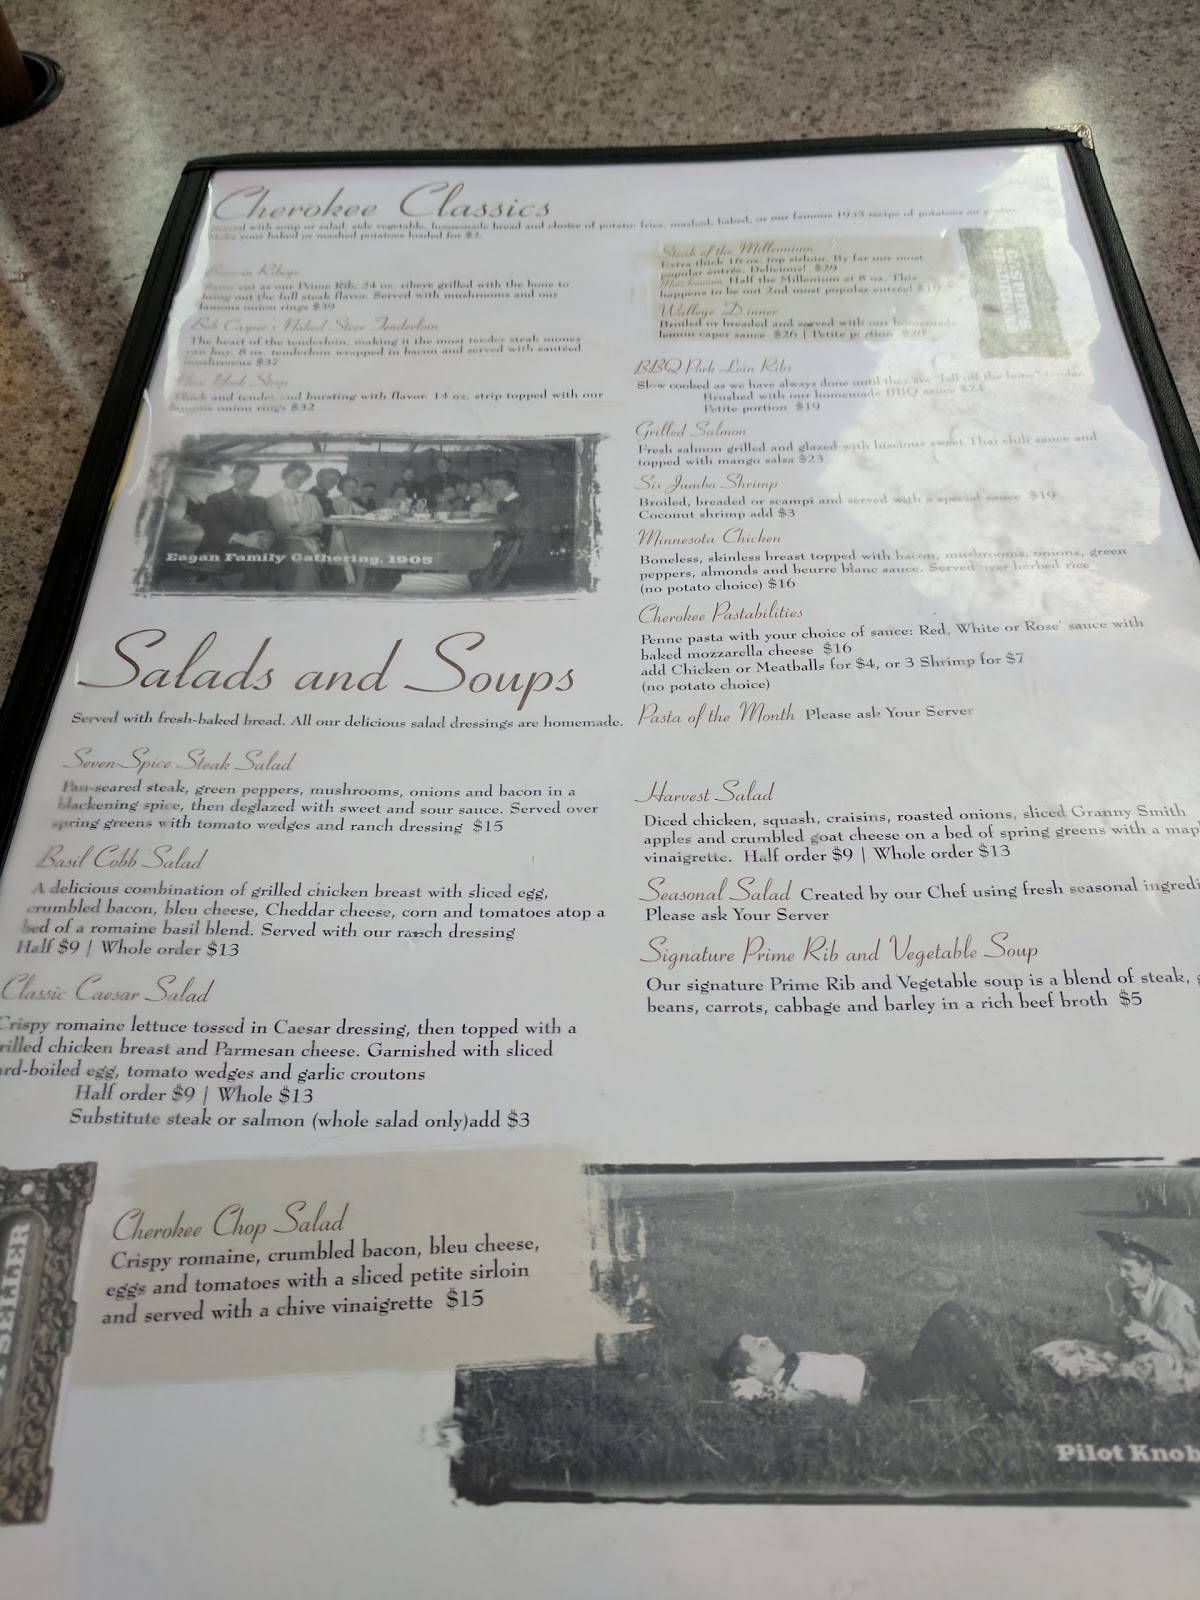 Cherokee Classics
Served with soup or salad, side vegetable, homemade bread and choice of potato: fries, mashed, baked, or our famous 1933 recipe of potatoes au gratin.
Make your baked or mashed potatoes loaded for $2.
Bone-in Ribeye
Same cut as our Prime Rib, 24 oz. ribeye grilled with the bone to
bring out the full steak flavor. Served with mushrooms and our
famous onion rings $39
Bob Casper's Naked Steer Tenderloin
The heart of the tenderloin, making it the most tender steak money
can buy. 8 oz. tenderloin wrapped in bacon and served with sautéed
mushrooms $37
New York Strip
Thick and tender and bursting with flavor. 14 oz. strip topped with our
famous onion rings $32
Eagan Family Gathering, 1905
Salads and Soups
Served with fresh-baked bread. All our delicious salad dressings are homemade.
Seven-Spice Steak Salad
Pan-seared steak, green peppers, mushrooms, onions and bacon in a
blackening spice, then deglazed with sweet and sour sauce. Served over
spring greens with tomato wedges and ranch dressing $15
Basil Cobb Salad
A delicious combination of grilled chicken breast with sliced egg,
crumbled bacon, bleu cheese, Cheddar cheese, corn and tomatoes atop a
bed of a romaine basil blend. Served with our ranch dressing
Half $9 | Whole order $13
Classic Caesar Salad
Crispy romaine lettuce tossed in Caesar dressing, then topped with a
rilled chicken breast and Parmesan cheese. Garnished with sliced
ard-boiled egg, tomato wedges and garlic croutons
Half order $9 | Whole $13
Substitute steak or salmon (whole salad only)add $3
SELLER
Cherokee Chop Salad
Crispy romaine, crumbled bacon, bleu cheese,
eggs and tomatoes with a sliced petite sirloin
and served with a chive vinaigrette $15
Steak of the Millennium
Extra thick 16 oz. top sirloin. By far our most
popular entrée. Delicious! $29
Half the Millenium at 8 oz. This
happens to be our 2nd most popular entrée!
Walleye Dinner
Broiled or breaded and served with our homemade
lemon caper sauce $26 | Petite portion $20
BBQ Pork Loin Ribs
Slow cooked as we have always done until they are "fall off the bone" tender.
Brushed with our homemade BBQ sauce $24
Petite portion $19
Grilled Salmon
Fresh salmon grilled and glazed with luscious sweet Thai chili sauce and
topped with mango salsa $23
Six Jumbo Shrimp
Broiled, breaded or scampi and served with a special sauce $19
Coconut shrimp add $3
Minnesota Chicken
Boneless, skinless breast topped with bacon, mushrooms, onions, green
peppers, almonds and beurre blanc sauce. Served over herbed rice
(no potato choice) $16
Cherokee Pastabilities
Penne pasta with your choice of sauce: Red, White or Rose' sauce with
baked mozzarella cheese $16
add Chicken or Meatballs for $4, or 3 Shrimp for $7
(no potato choice)
Pasta of the Month Please ask Your Server
Harvest Salad
Diced chicken, squash, craisins, roasted onions, sliced Granny Smith
apples and crumbled goat cheese on a bed of spring greens with a mapl
vinaigrette. Half order $9 | Whole order $13
Seasonal Salad Created by our Chef using fresh seasonal ingredi
Please ask Your Server
Signature Prime Rib and Vegetable Soup
Our signature Prime Rib and Vegetable soup is a blend of steak,
beans, carrots, cabbage and barley in a rich beef broth $5
Pilot Knob